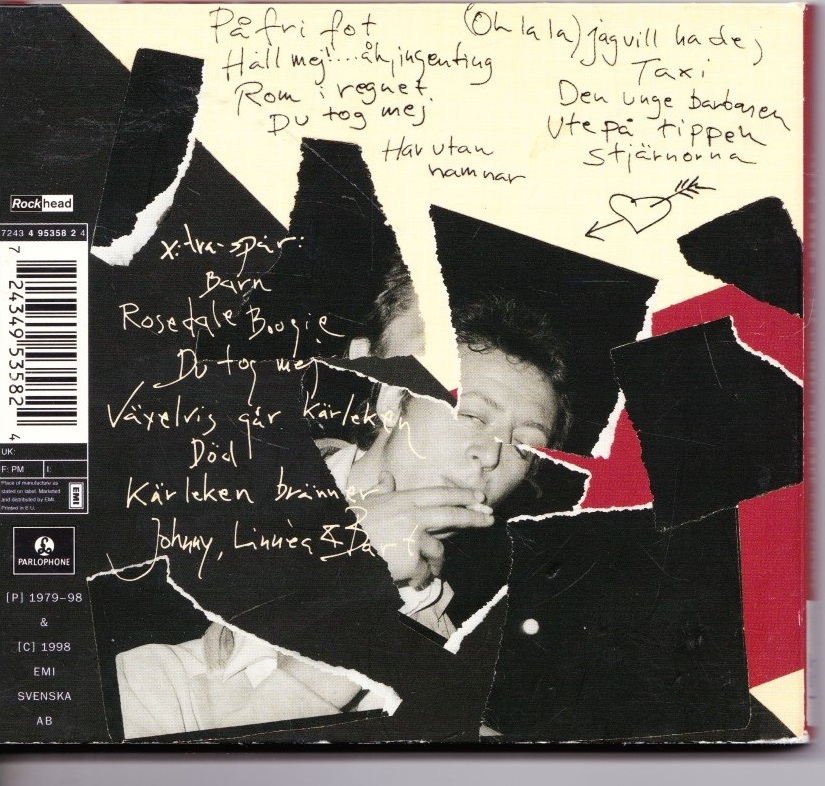 På fri fot
Håll mej!....åh, ingenting
Rom i regnet
Du tog mej
Har utan
namnar
(Oh la la) jag vill ha dej
Taxi
Den unge barbaren
Ute på tippen
Stjärnorna
x:tra-spår:
Barn
Rosedale Boogie
Du tog mej
Växelvis går kärleken
Död
Kärleken bränner
Johnny, Linnéa & Bart
Rockhead
7243 4 95358 2 4
7 24349 53582 4
UK:
F: PM
I:
Place of manufacture as
stated on label. Marketed
and distributed by EMI.
Printed in E.U.
EMI
PARLOPHONE
[P] 1979-98
&
[C] 1998
EMI
SVENSKA
AB